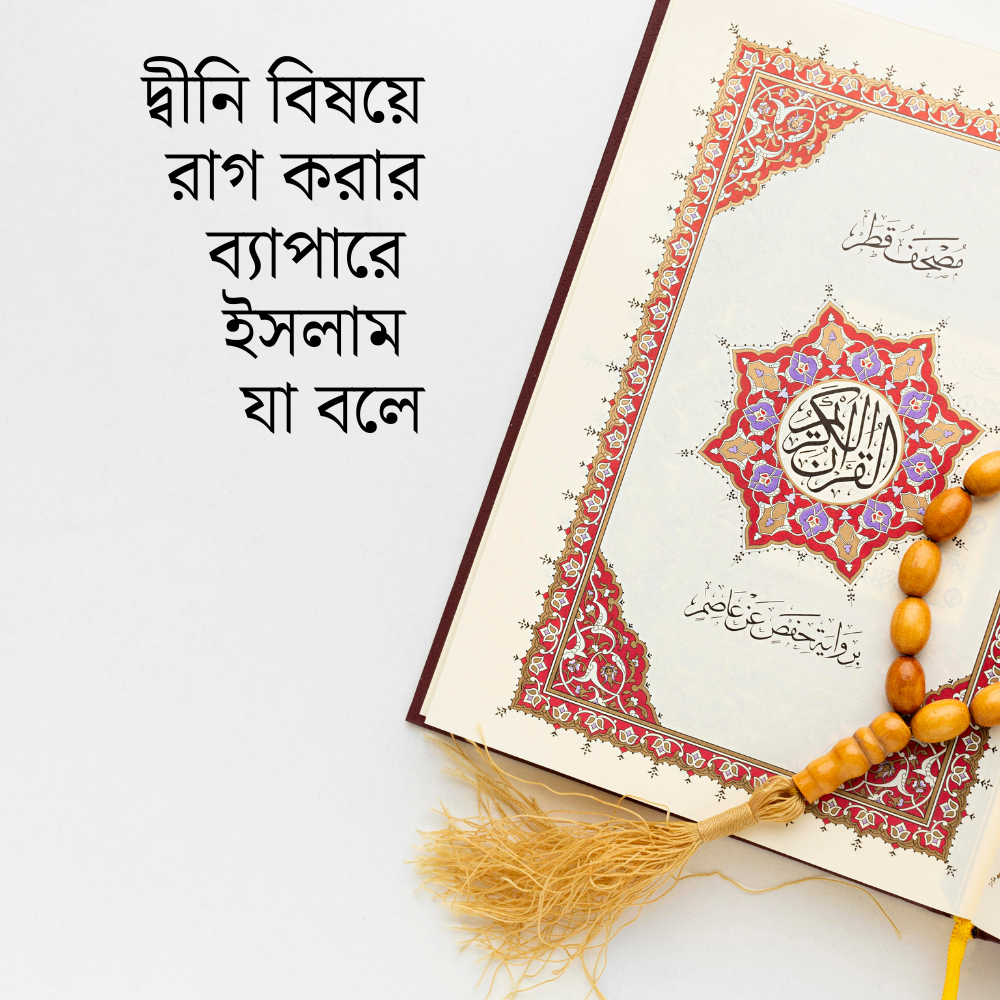 দ্বীনি বিষয়ে
রাগ করার
ব্যাপারে
ইসলাম
যা বলে
مصحف قطر
القرآن الكريم
برواية حفص عن عاصم